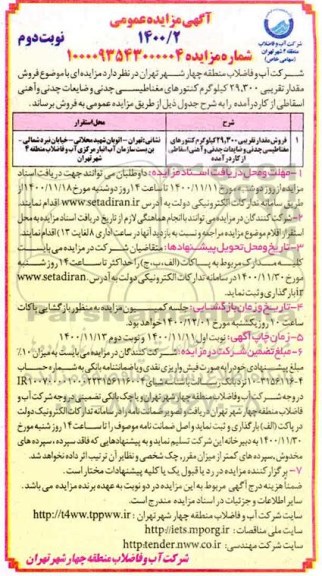 آگهی مزایده عمومی
۱۴۰۰/۲
نوبت دوم
شماره مزایده ۱۰۰۰۰۹۳۵۴۳۰۰۰۰۰۴
شرکت آب و فاضلاب
منطقه ۴ شهر تهران
(سهامی خاص)
شرکت آب و فاضلاب منطقه چهار شهر تهران در نظر دارد مزایده ای با موضوع فروش
مقدار تقریبی ۲۹,۳۰۰ کیلوگرم کنتورهای مغناطیسی چدنی و ضایعات چدنی و آهنی
اسقاطی از کار درآمده را به شرح جدول ذیل از طریق مزایده عمومی به فروش برساند.
شرح
محل استقرار
فروش مقدار تقریبی ۲۹,۳۰۰ کیلوگرم کنتورهای
مغناطیسی چدنی و ضایعات چدنی و آهنی اسقاطی
از کار درآمده
نشانی: تهران – اتوبان شهید محلاتی – خیابان نبرد شمالی –
بن بست سازمان آب انبار مرکزی آب و فاضلاب منطقه ۴
شهر تهران
۱– مهلت و محل دریافت اسناد مزایده: داوطلبان می توانند جهت دریافت اسناد
مزایده از روز دوشنبه مورخ ۱۴۰۰/۱۱/۱۱ تا ساعت ۱۴ روز دوشنبه مورخ ۱۴۰۰/۱۱/۱۸ از
طریق سامانه تدارکات الکترونیکی دولت به آدرس www.setadiran.ir اقدام نمایند.
۲– شرکت کنندگان در مزایده می توانند با انجام هماهنگی لازم از تاریخ دریافت اسناد مزایده به محل
استقرار اقلام موضوع مزایده مراجعه و نسبت به بازدید آنها در ساعت اداری (۸ لغایت ۱۳) اقدام نمایند.
۳– تاریخ و محل تحویل پیشنهادها: متقاضیان شرکت در مزایده می بایست
کلیه مدارک مربوط به پاکات (الف، ب، ج) را حداکثر تا ساعت ۱۴ روز شنبه
مورخ ۱۴۰۰/۱۱/۳۰ در سامانه تدارکات الکترونیکی دولت به آدرس www.setadiran.
ir بارگذاری و ثبت نماید.
۴– تاریخ و زمان بازگشایی: جلسه کمیسیون مزایده به منظور بازگشایی پاکات
ساعت ۱۰ روز یکشنبه مورخ ۱۴۰۰/۱۲/۰۱ خواهد بود.
۵– زمان چاپ آگهی: نوبت اول ۱۴۰۰/۱۱/۱۱ و نوبت دوم ۱۴۰۰/۱۱/۱۲
۶– مبلغ تضمین شرکت در مزایده: شرکت کنندگان در مزایده می بایست به میزان ۱۰٪
مبلغ پیشنهادی خود را به صورت فیش واریزی نقدی و یا ضمانتنامه بانکی به شماره حساب
در وجه شرکت آب و فاضلاب منطقه چهار شهر تهران و یا چک بانکی تضمینی در وجه شرکت آب و
فاضلاب منطقه چهار شهر تهران دریافت و تصویر ضمانت نامه را در سامانه تدارکات الکترونیک دولت
در پاکت (الف) بارگذاری و ثبت نماید و اصل ضمانت نامه موصوف را تا ساعت ۱۴ روز شنبه مورخ
۱۴۰۰/۱۱/۳۰ به دبیرخانه این شرکت تسلیم نماید و به پیشنهادهایی که فاقد سپرده، سپرده های
مخدوش، سپرده های کمتر از میزان مقرر، چک شخصی و نظایر آن ترتیب اثر داده نخواهد شد.
۷– برگزار کننده مزایده در رد یا قبول یک یا کلیه پیشنهادات مختار است.
ضمناً هزینه درج آگهی مربوط به این مزایده در دو نوبت به عهده برنده مزایده می باشد.
سایر اطلاعات و جزئیات در اسناد مزایده مندرج است.
سایت شرکت آب و فاضلاب منطقه چهار شهر تهران: http://t4ww.tppww.ir
سایت ملی مناقصات: http://iets.mporg.ir
سایت شرکت مهندسی: http:tender.nww.co.ir
شرکت آب و فاضلاب منطقه چهار شهر تهران